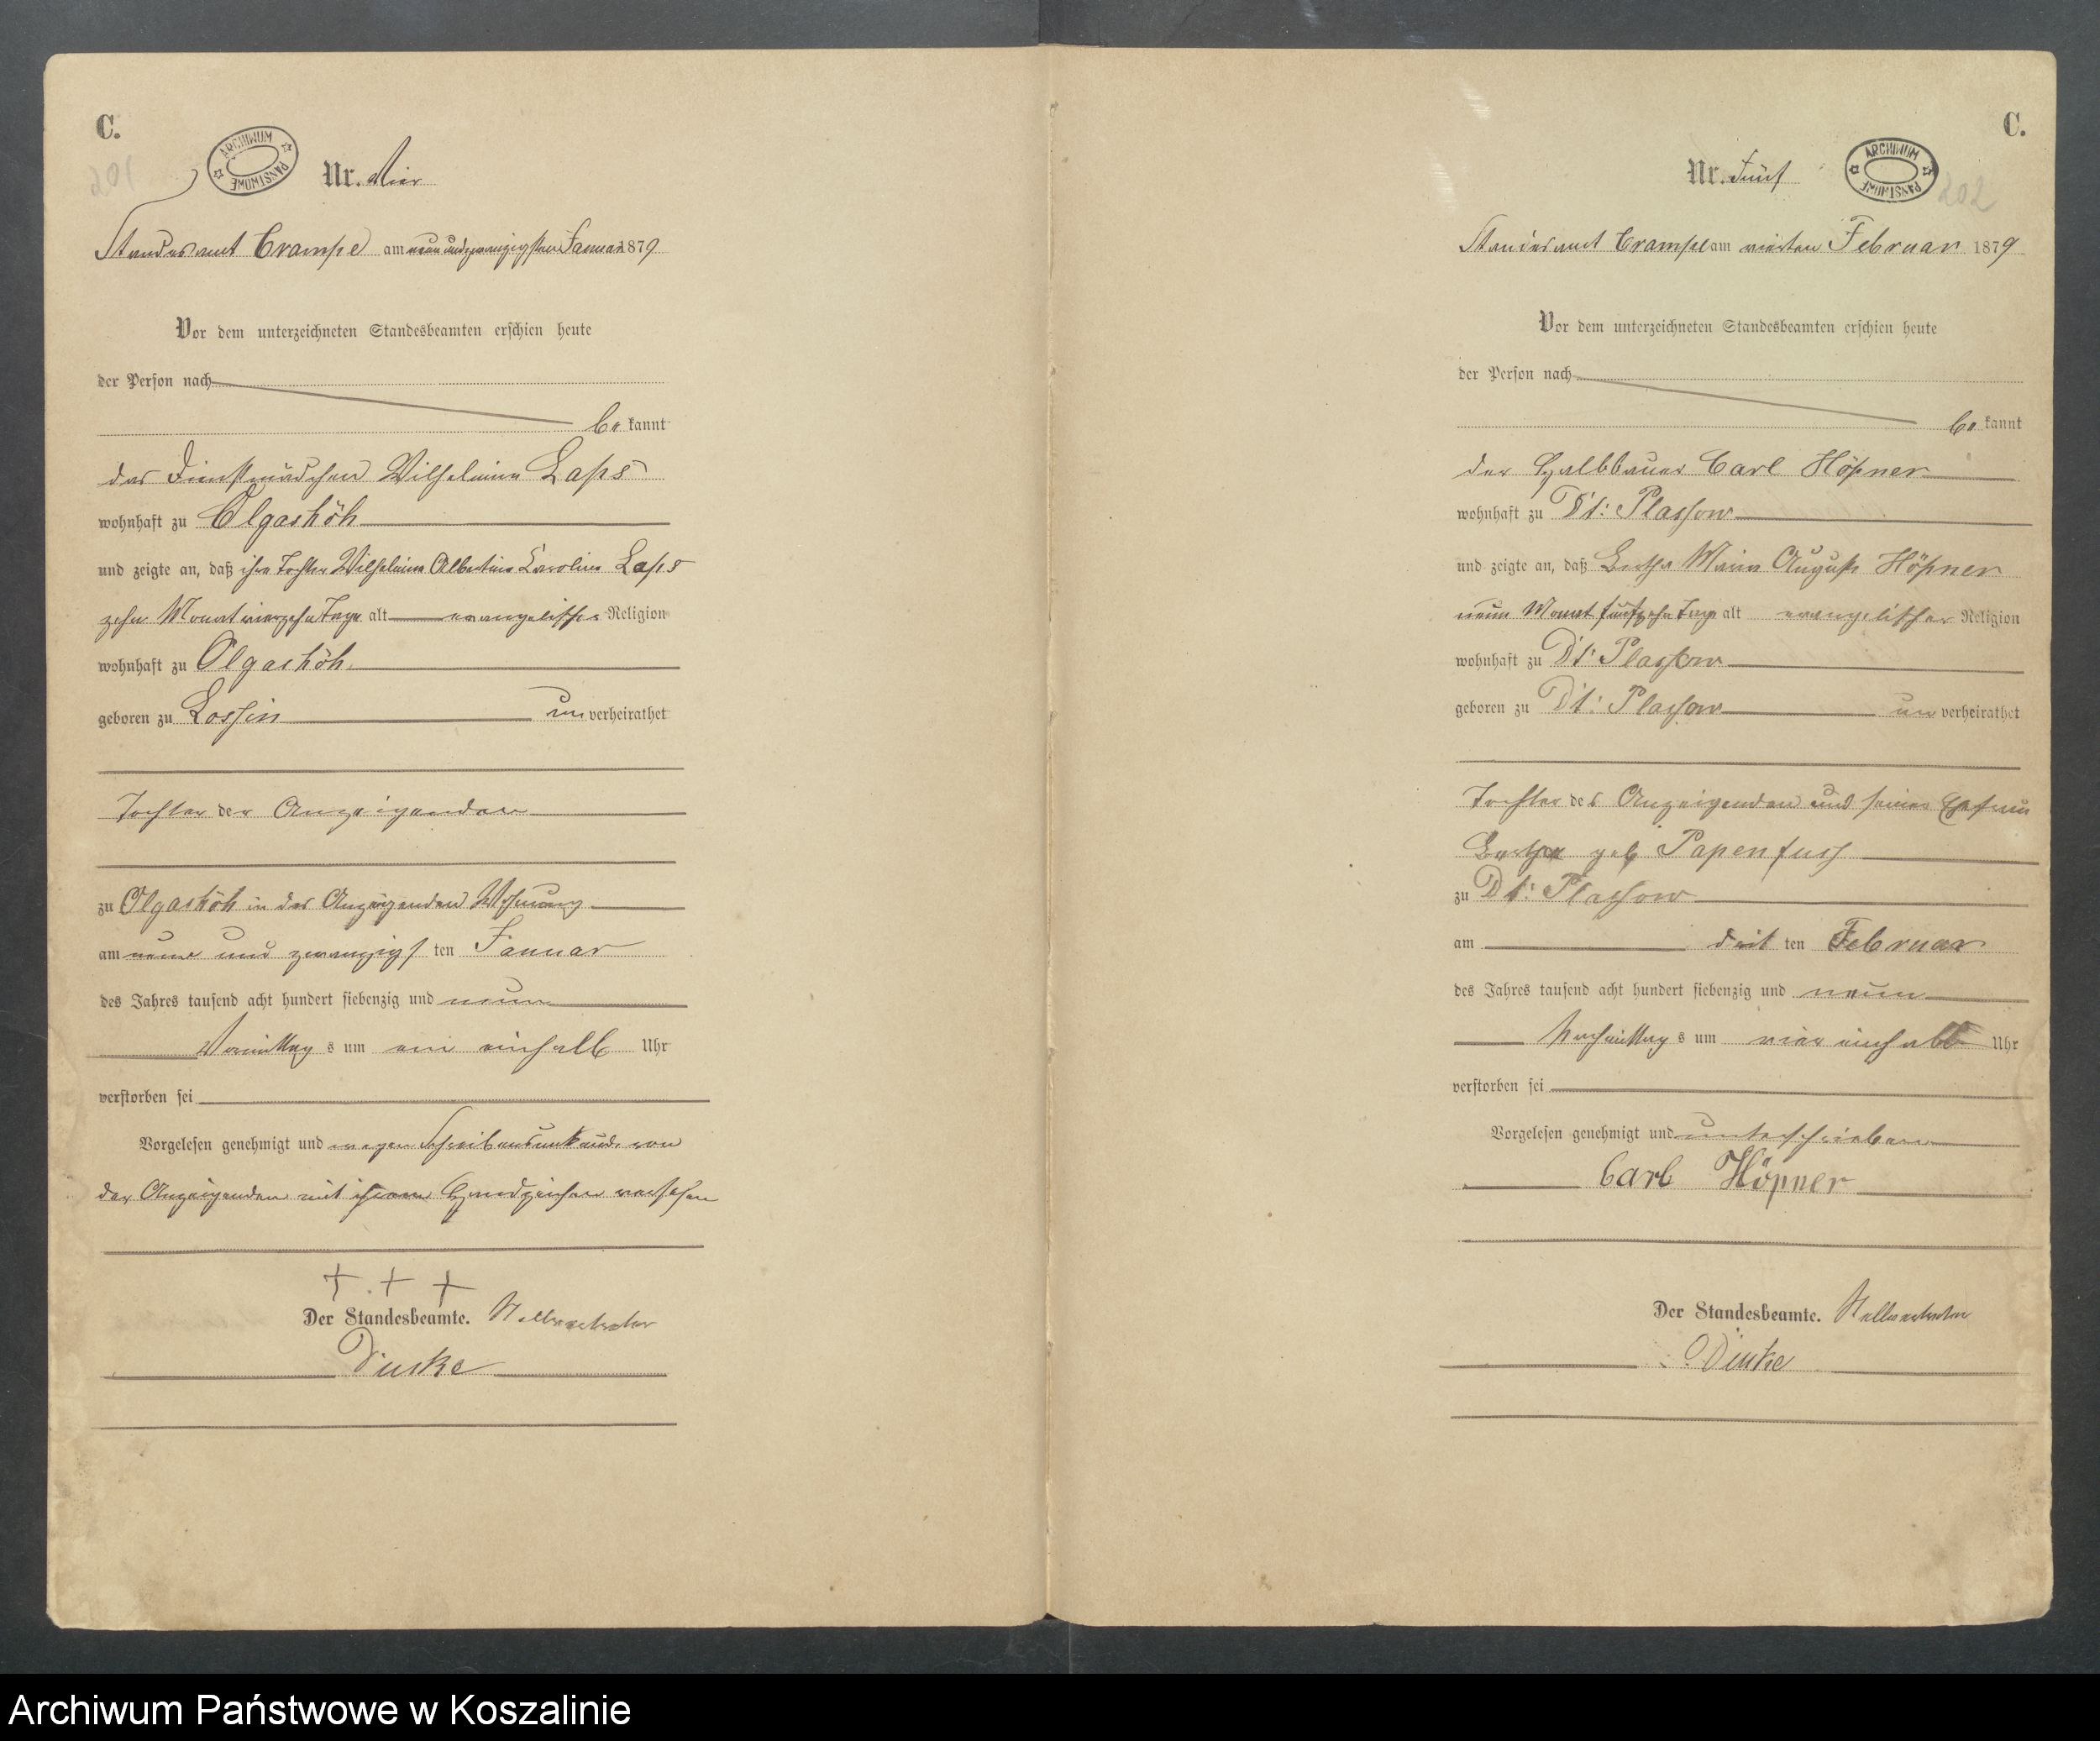 C.
201
ARCHIWUM PAŃSTWOWE
Nr. Vier
Standesamt Crampe am neunundzwanzigsten Januar 1879
Vor dem unterzeichneten Standesbeamten erschien heute
der Person nach
be kannt
das Dienstmädchen Wilhelmine Laps
wohnhaft zu Olgashöh
und zeigte an, daß ihre Tochter Wilhelmine Albertine Caroline Laps
zehn Monat vierzehn Tage alt evangelischer Religion
wohnhaft zu Olgashöh
geboren zu Lossin un verheirathet
Tochter der Anzeigenden
zu Olgashöh in der Anzeigenden Wohnung
am neun und zwanzigs ten Januar
des Jahres tausend acht hundert siebenzig und neun
Vormittag s um ein einhalb Uhr
verstorben sei
Vorgelesen genehmigt und wegen Schreibensunkunde von
der Anzeigenden mit ihrem Handzeichen versehen
+ + +
Der Standesbeamte. Stellvertreter
C.
ARCHIWUM PAŃSTWOWE
202
Nr. Fünf
Standesamt Crampe am vierten Februar 1879
Vor dem unterzeichneten Standesbeamten erschien heute
der Person nach
be kannt
der Halbbauer Carl Höpner
wohnhaft zu Dt: Plassow
und zeigte an, daß Bertha Marie Auguste Höpner
neun Monat fünfzehn Tage alt evangelischer Religion
wohnhaft zu Dt: Plassow
geboren zu Dt: Plassow un verheirathet
Tochter des Anzeigenden und seiner Ehefrau
Bertha geb Papenfuss
zu Dt: Plassow
am drit ten Februar
des Jahres tausend acht hundert siebenzig und neun
Nachmittag s um vier einhalb Uhr
verstorben sei
Vorgelesen genehmigt und unterschrieben
Carl Höpner
Der Standesbeamte. Stellvertreter
Archiwum Państwowe w Koszalinie